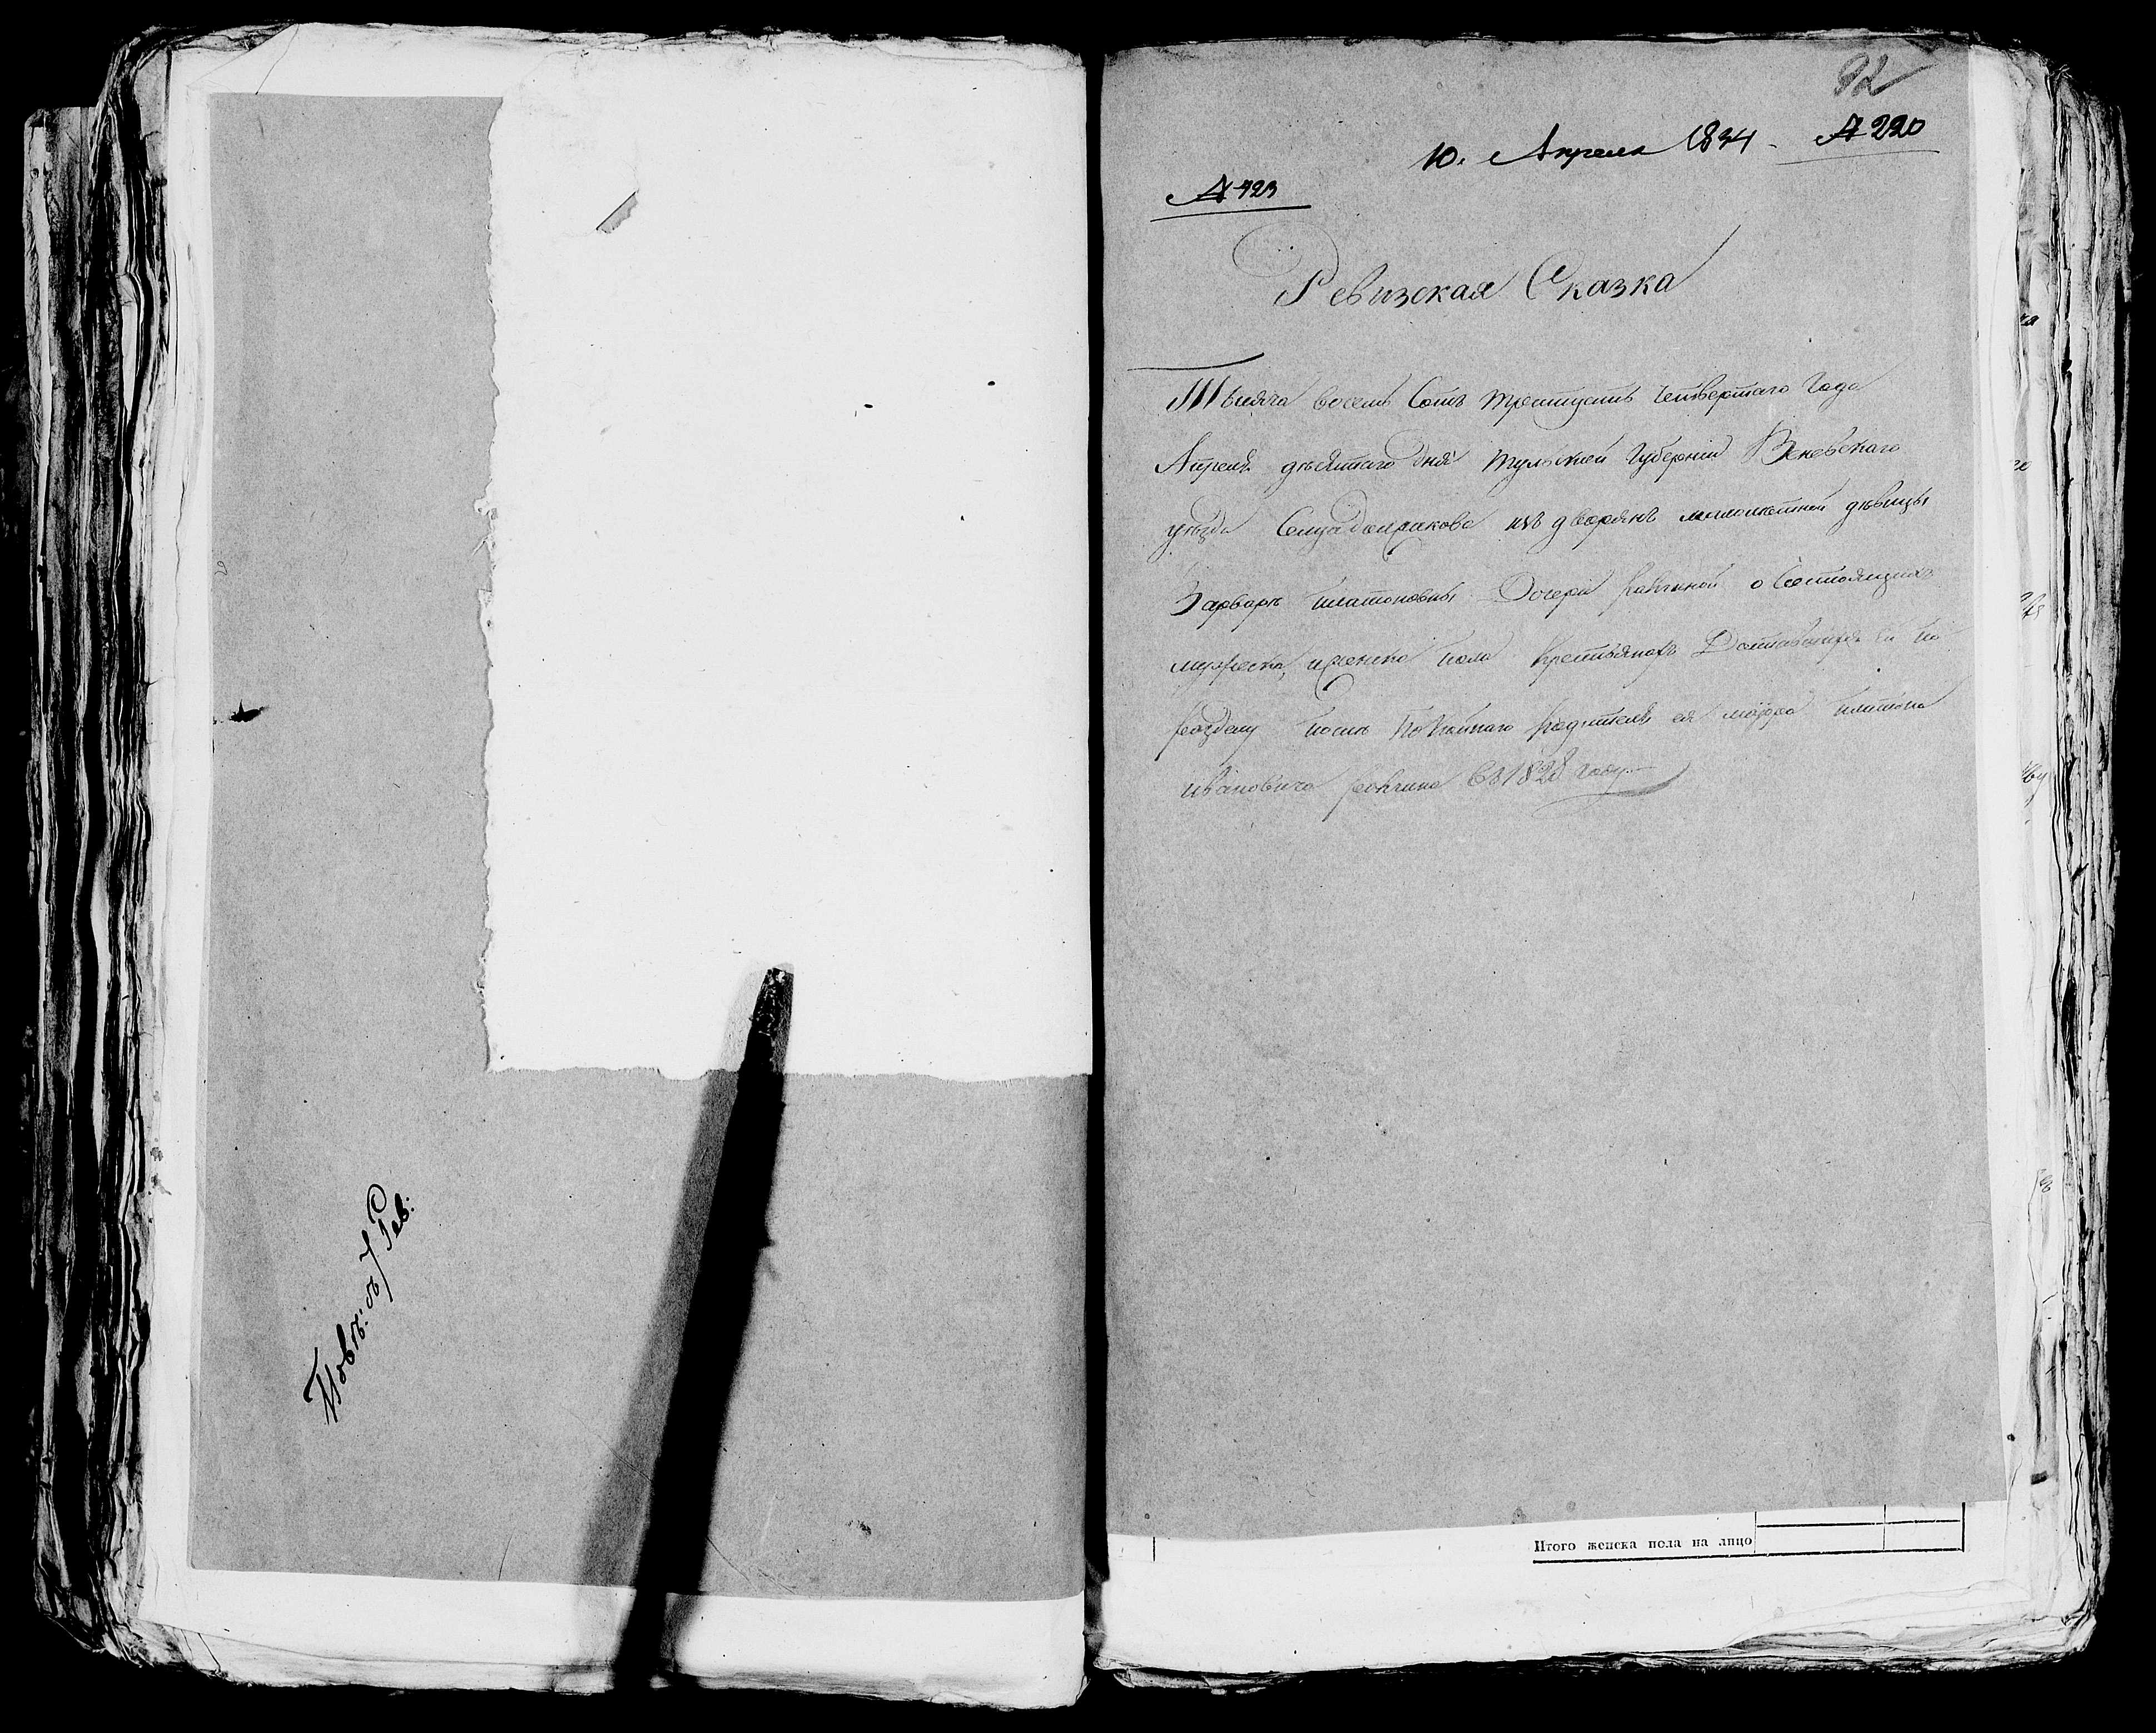 Повѣ: въ 7 Рев:
92
10. Апреля 1834 - № 220
№ 723
Ревизская Сказка
Тысяча восемь Сотъ тритцать четвертаго Года
Апреля десятаго дня Тульской Губерніи Веневскаго
уезда Сельца из дворянъ малолетной девицы
Варвары Платоновны Дочери о Состоящихъ
мужеска, и женска пола крестьянахъ Доставшихся ей по
разделу после Покойнаго родителя ея маіора Платона
Ивановича въ 1828 году.
Итого женска пола на лицо